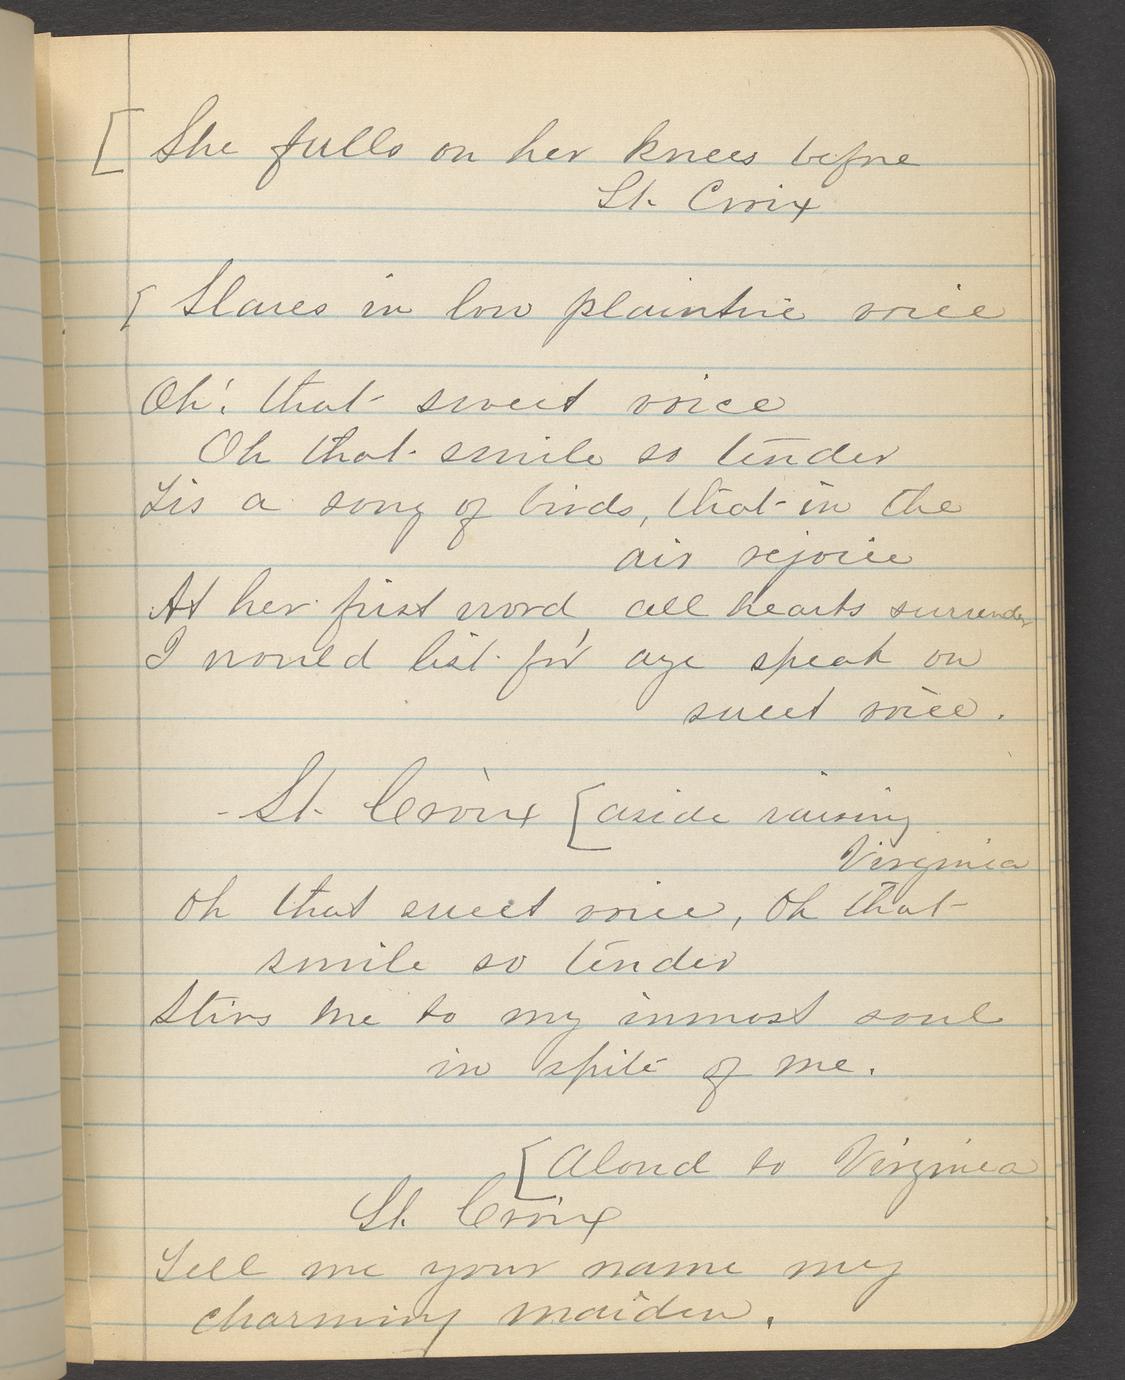 [ She falls on her knees before
St. Croix
[ Slaves in low plaintive voice
Oh! that sweet voice
Oh that smile so tender
Tis a song of birds, that in the
air rejoice
At her first word, all hearts surrender
I would list for aye speak on
sweet voice.
- St. Croix [ aside raising
Virginia
Oh that sweet voice, Oh that
smile so tender
Stirs me to my inmost soul
in spite of me.
[ Aloud to Virginia
St. Croix
Tell me your name my
charming maiden.